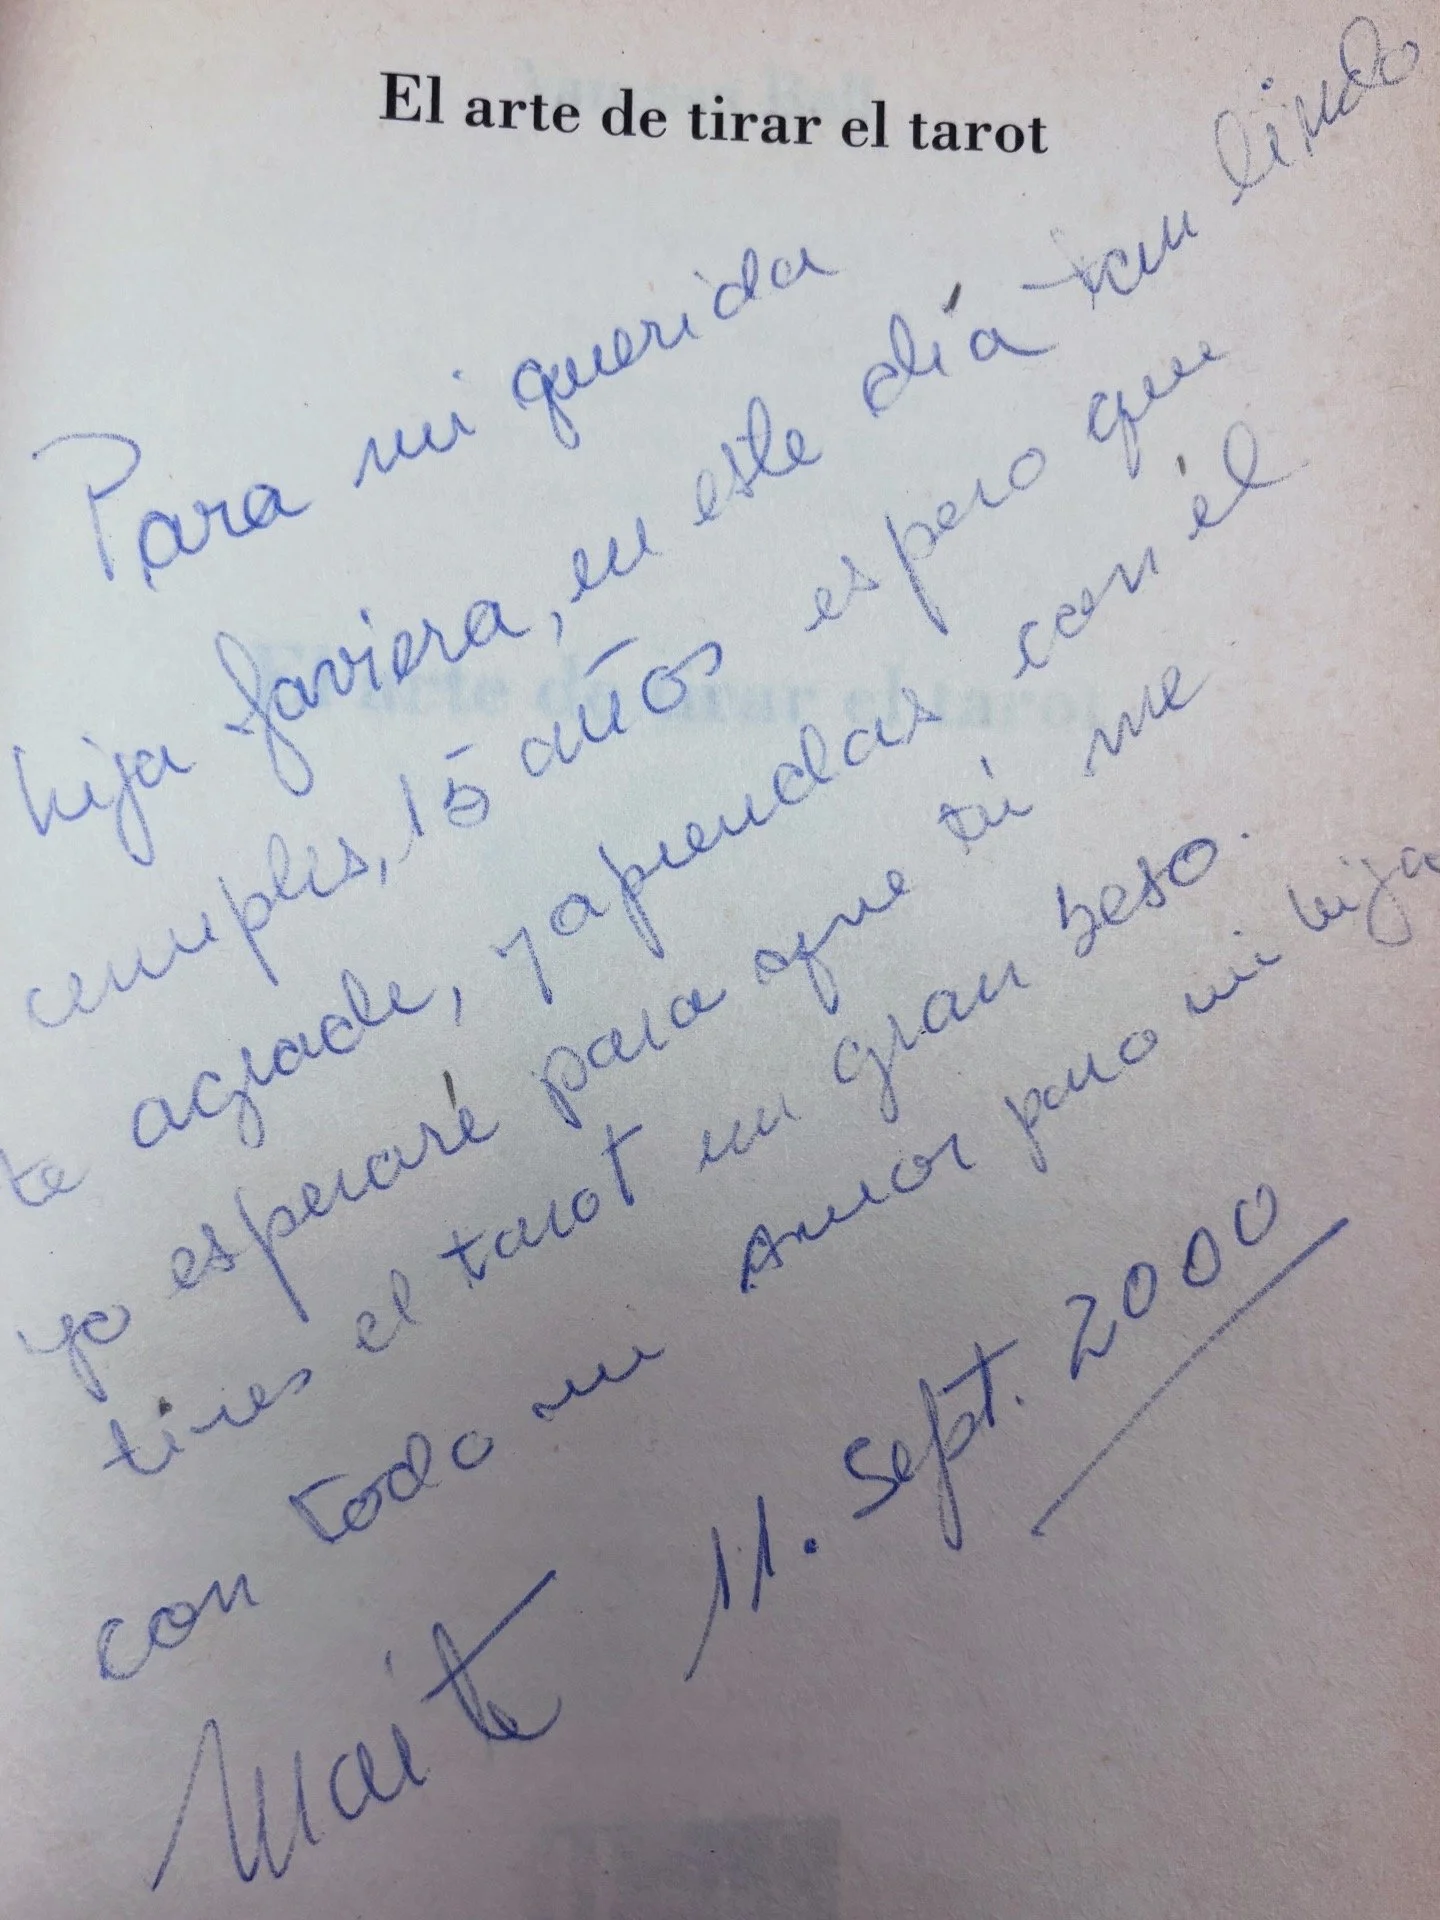 El arte de tirar el tarot
Para mi querida
hija Javiera, en este día tan lindo
cumples, 15 años espero que
te agrade, y aprendas con él
yo esperaré para que tú me
tires el tarot un gran beso.
con todo mi Amor para mi hija
Maite 11. Sept. 2000